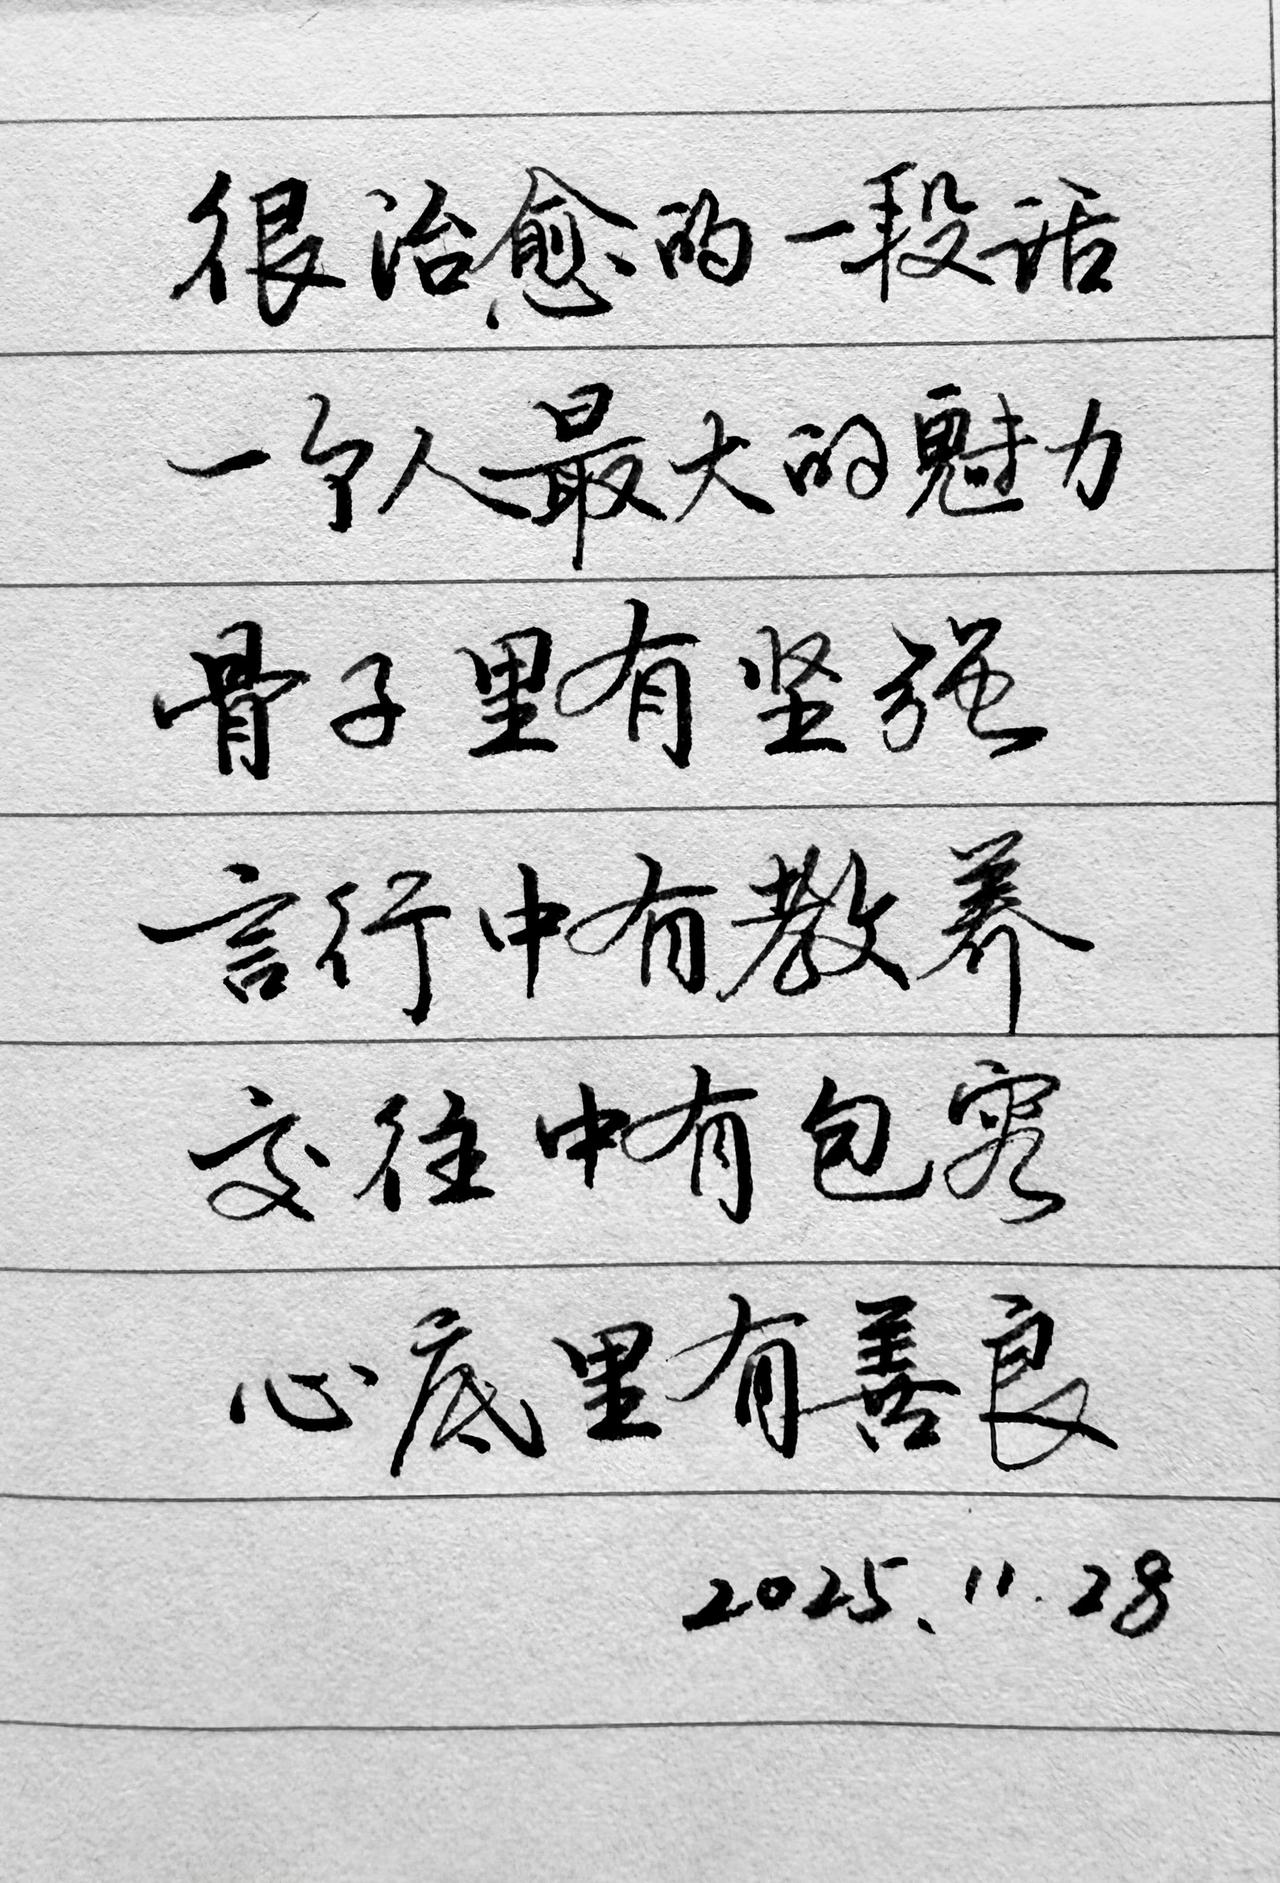 很治愈的一段话
一个人最大的魅力
骨子里有坚强
言行中有教养
交往中有包容
心底里有善良
2025.11.28